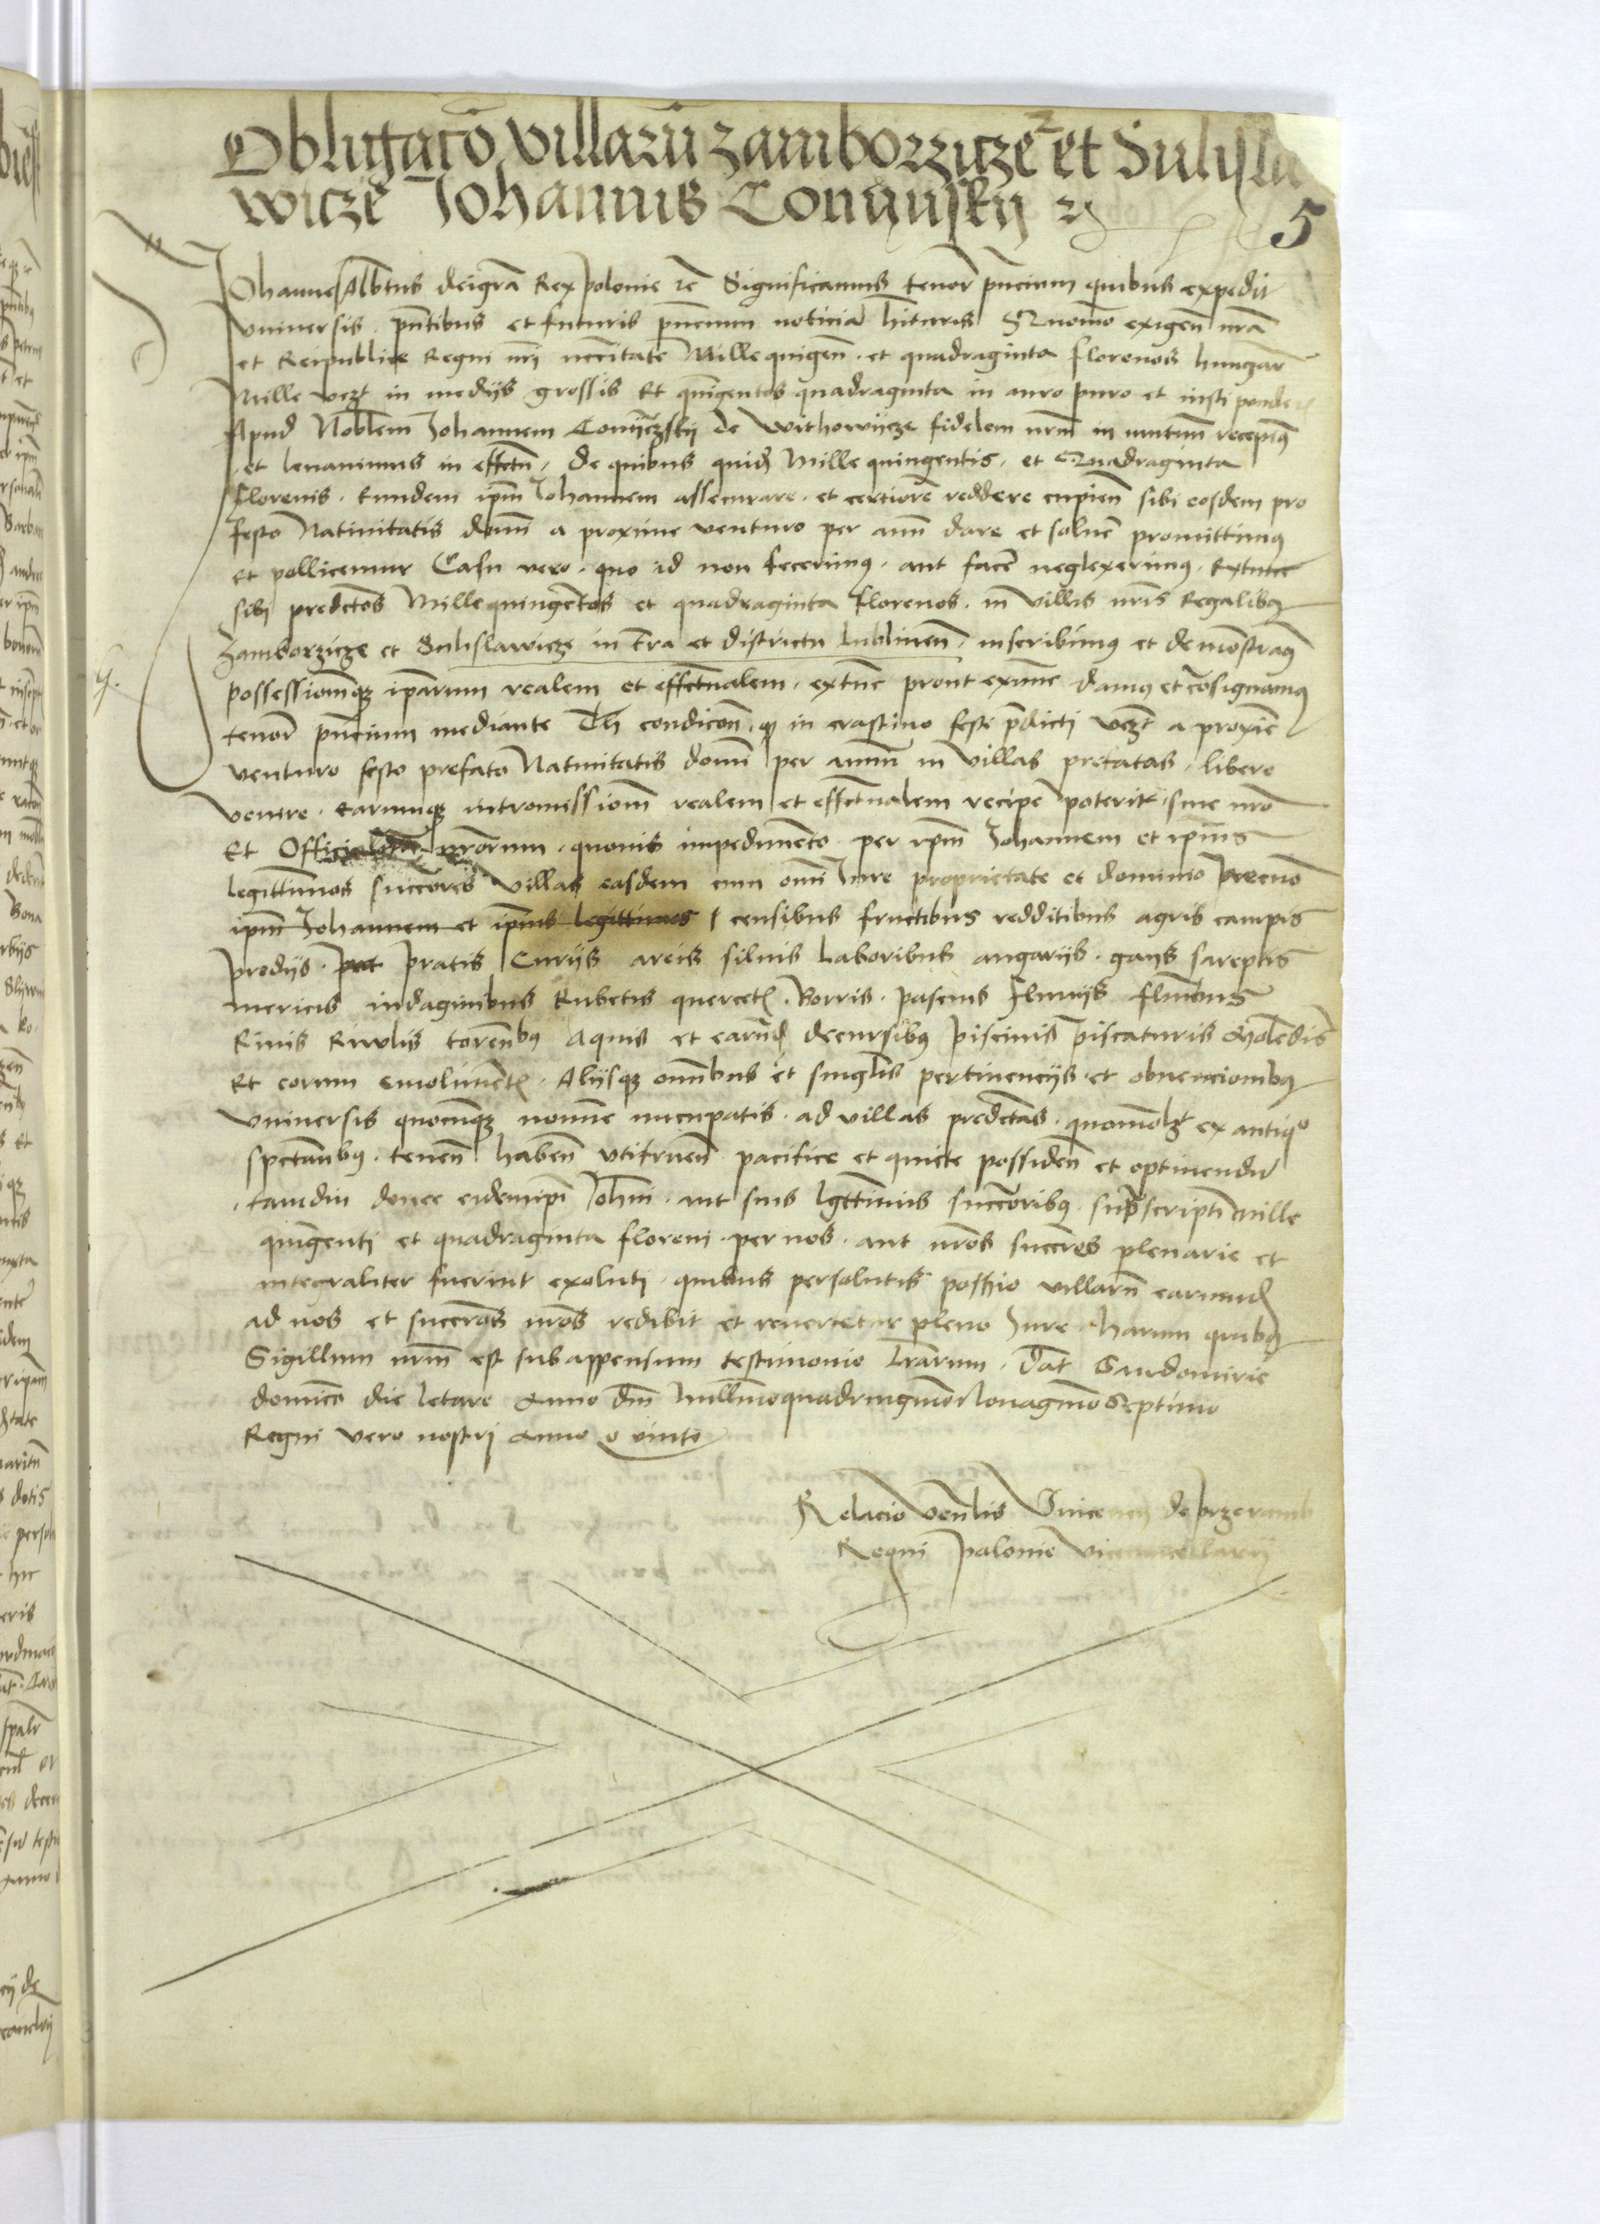 Obligaco villaru zamborzicze et Sulisla
wicze Johannis Conynsky
5
Johannes Albtus dei gra Rex polonie zc Significamus tenor pncium quibus expedit
vniversis pntibus et futuris pncium noticia hituris Quomo exigen nra
et Reipublice Regni nri nccitate Mille quigen et quadraginta florenos hungar
Mille vezt in medijs grossis et quigentos quadraginta in auro puro et iusti ponder
Apud Noblem Johannem Conyczsky de withowycze fidelem nrm in mutuu recepimus
et levavimus in effctu de quibus quid Mille quingentis et Quadraginta
florenis Eundem ipm Johannem assecurare et certiore reddere cupien sibi eosdem pro
festo Nativitatis domi a proxime venturo per annu dare et solue promittimus
et pollicemur Casu vero quo id non fecerimus aut face neglexerimus Extunc
sibi predctos Mille quingentos et quadraginta florenos in villis nris Regalibus
Zamborzicze et Sulislawicze in tra et districtu lublinen inscribimus et demonstramus
possessionemque iparum realem et effctualem extunc prout exnunc damus et consignamus
tenore pncium mediante Th condicon q in crastino festi pdicti vezt a proxie
venturo festo prefato Nativitatis domi per annu in villas prefatas libere
venire earumque intromissionem realem et effctualem recipe poterit sine nro
Et Officialium nrorum quouis impedimento per ipm Johannem et ipius
legittimos succores villas easdem cum omi Jure proprietate et dominio
ipm Johannem et ipius legittimos censibus fructibus redditibus agris campis
predijs prat pratis Curijs areis siluis laboribus angarijs gays sareptis
mericis indaginibus Rubetis quercet Borris pascuis fluuijs fluentis
Riuis Riwlis torrenbus Aquis et earund decursibus piscinis piscaturis Molendis
Et eorum emolument Alijsque omibus et singlis pertinencijs et obuencionibus
vniversis quocunque nomine nuncupatis ad villas predctas quomodolz ex antiquo
spctanbus tenen haben vtifruen pacifice et quiete possiden et optinendu
tamdiu donec eidem ipi Johni aut suis lgttimis succoribus suprascripti mille
quigenti et quadraginta floreni per nos aut nros succres plenarie et
integraliter fuerint exoluti quibus persolutis possio villaru earund
ad nos et succeros nros redibit et reuertetur pleno Jure harum quibus
Sigillum nrm est subappensum testimonio lrarum Dat Sandomirie
domico die letare Anno dni Millmoquadringmo Nonagmo Septimo
Regni vero nostri Anno quinto
Relacio venlis Vincency de przeramb
Regni polonie vicecancellarij